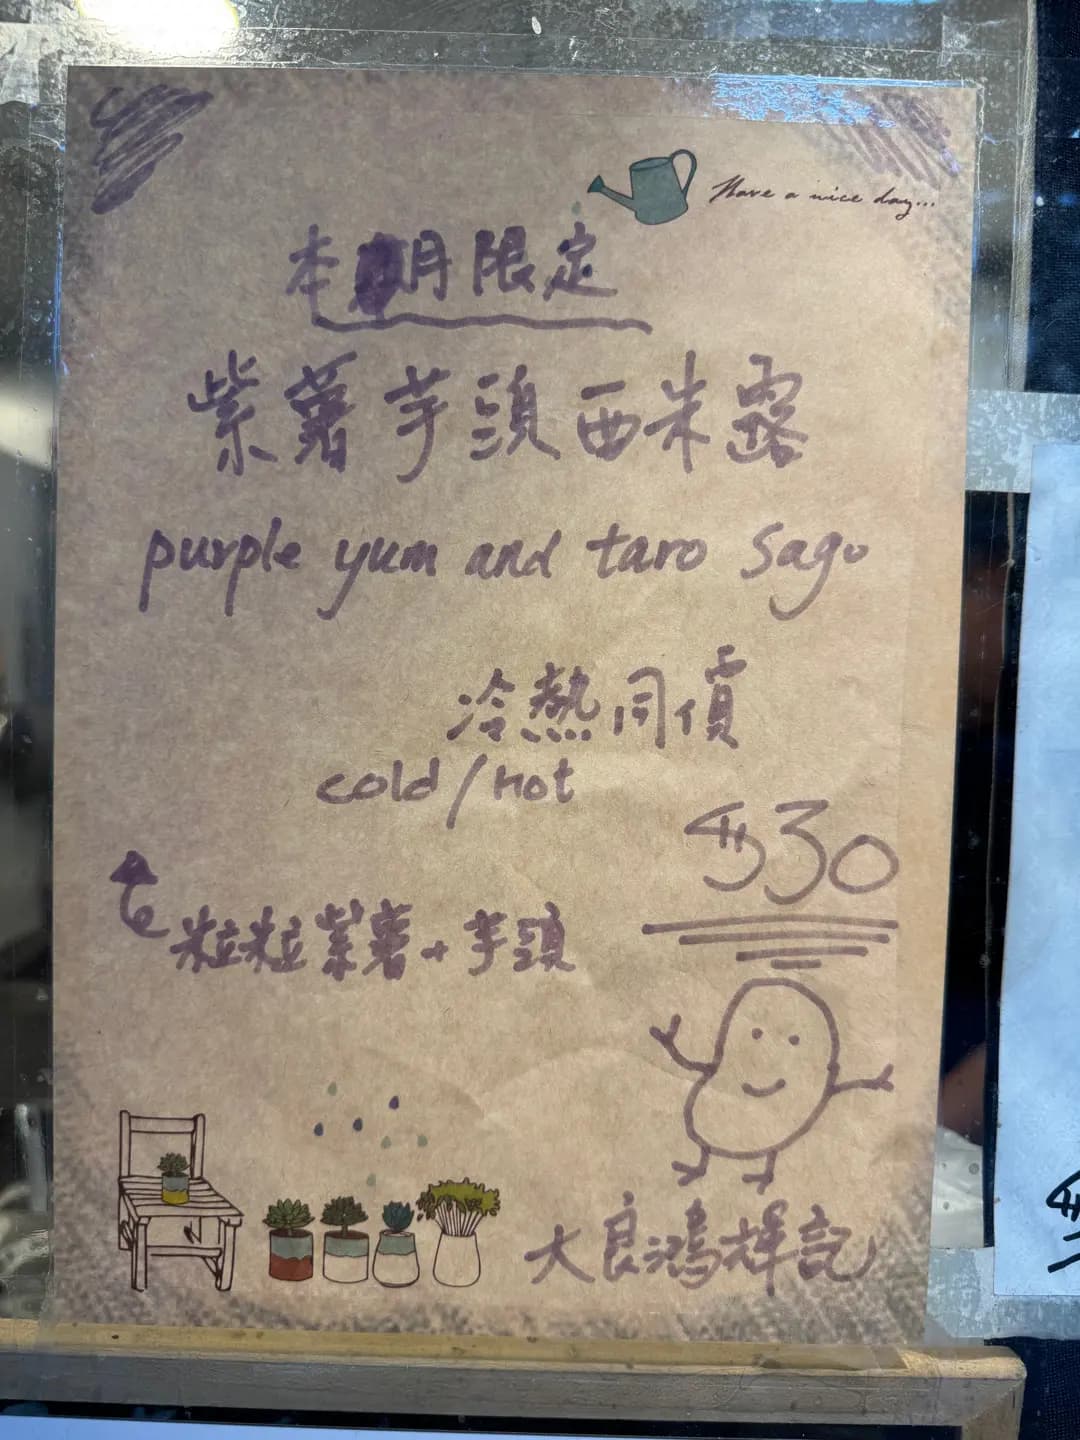 Have a nice day...
本月限定
紫薯芋頭西米露
purple yum and taro sago
冷熱同價
cold/hot
$30
粒粒紫薯+芋頭
大良鴻輝記